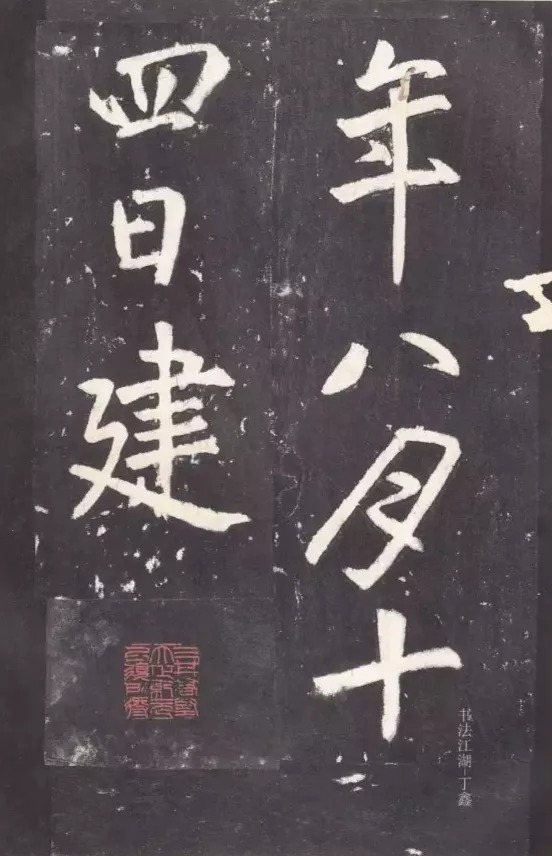 年八月十
四日建
书法江湖-丁鑫